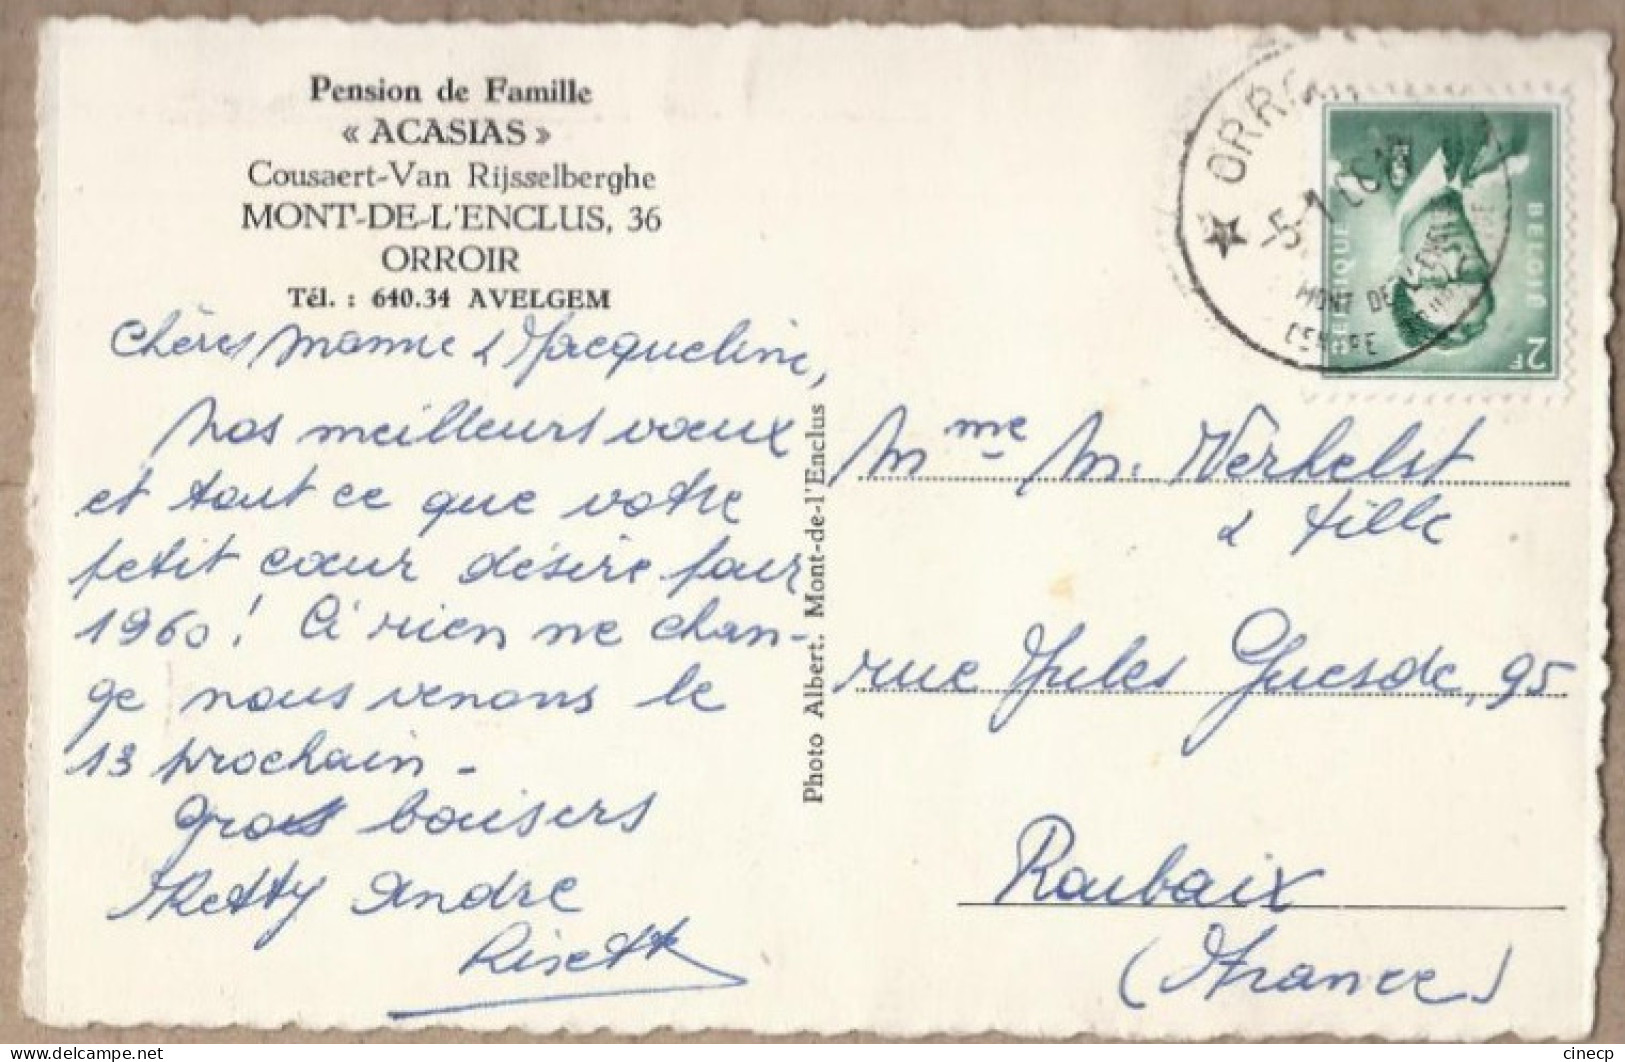 Pension de Famille
« ACASIAS »
Cousaert-Van Rijsselberghe
MONT-DE-L'ENCLUS, 36
ORROIR
Tél. : 640.34 AVELGEM
Chères Mamie & Jacqueline,
Nos meilleurs vœux
et tout ce que votre
petit cœur désire pour
1960 ! Ci rien ne chan-
ge nous venons le
13 prochain -
Gros baisers
Ketty André
Lisette
Photo Albert. Mont-de-l'Enclus
ORRO
-5-1
MONT DE L'ENCLUS
CENTRE
BELGIQUE
BELGIË
2F
Mme M. Verhelst
& fille
rue Jules Guesde, 95
Roubaix
(France)
delcampe.net
cinecp